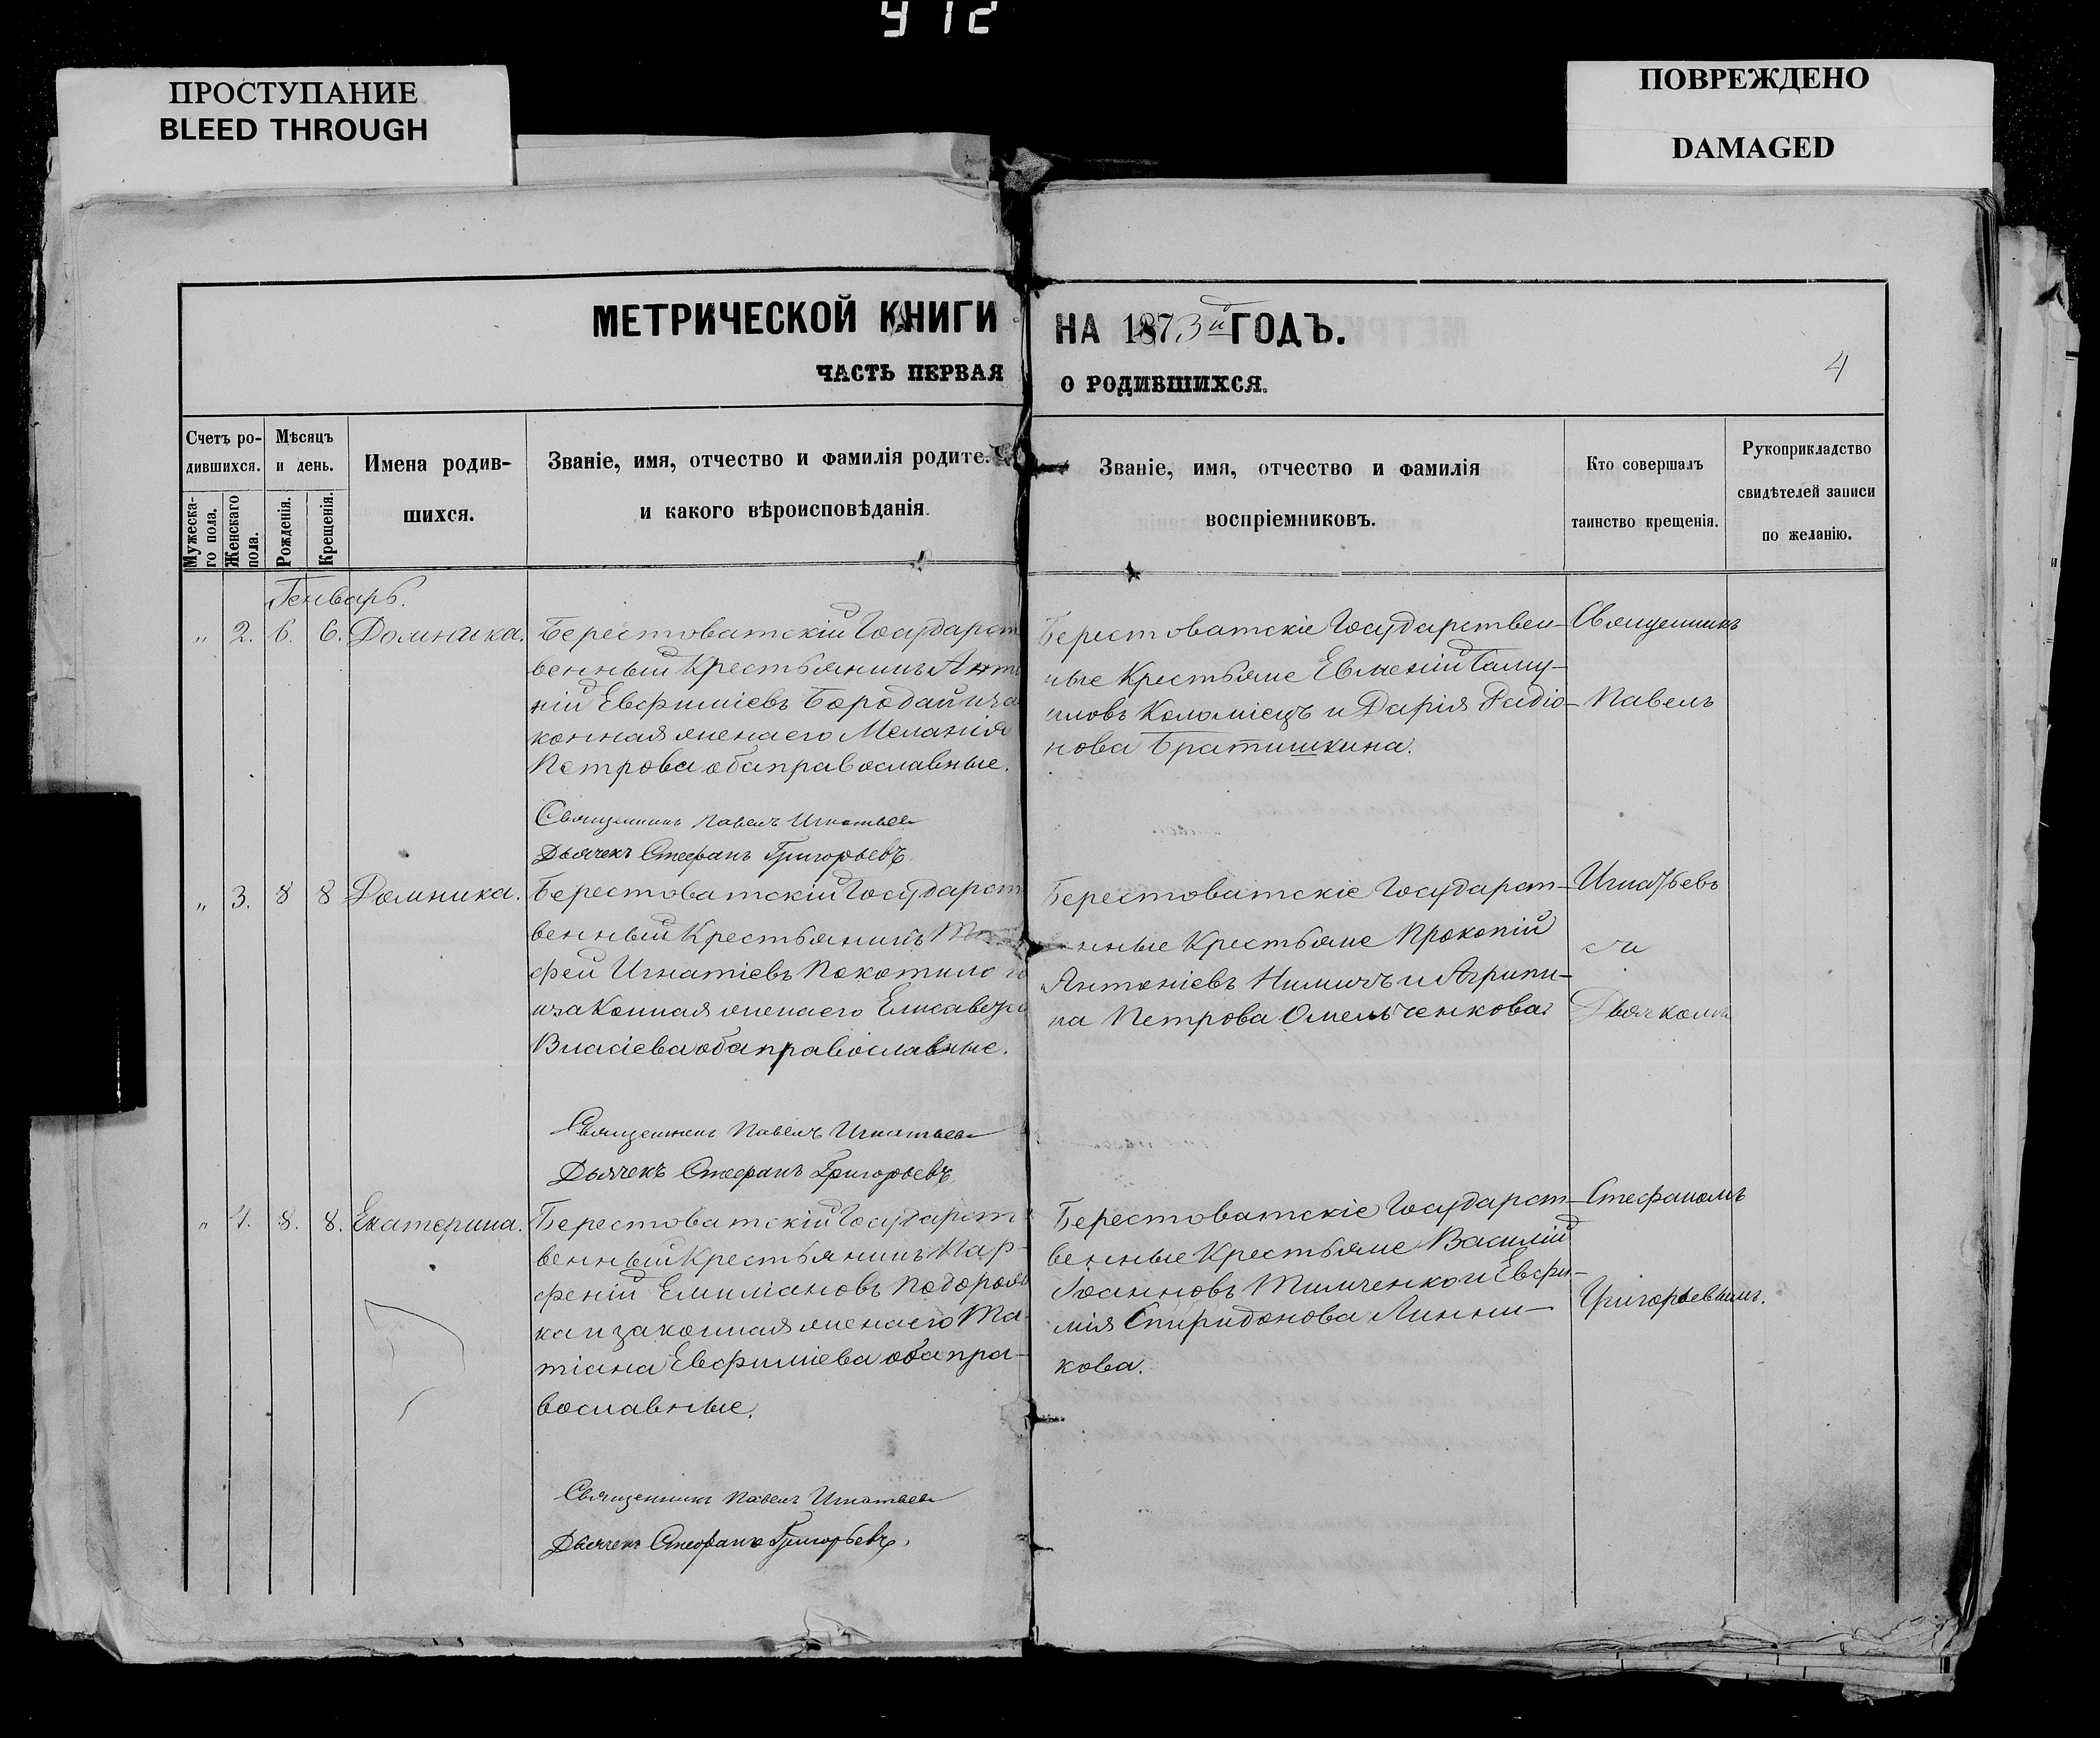 412
ПРОСТУПАНИЕ
BLEED THROUGH
ПОВРЕЖДЕНО
DAMAGED
МЕТРИЧЕСКОЙ КНИГИ НА 1873й ГОДЪ.
ЧАСТЬ ПЕРВАЯ О РОДИВШИХСЯ.
4
Счетъ ро-
дившихся.
Мужеска-
го пола.
Женскаго
пола.
Мѣсяцъ
и день.
Рожденія.
Крещенія.
Имена родив-
шихся.
Званіе, имя, отчество и фамилія родите.
и какого вѣроисповѣданія.
Званіе, имя, отчество и фамилія
воспріемниковъ.
Кто совершалъ
таинство крещенія.
Рукоприкладство
свидѣтелей записи
по желанію.
Генварь.
„ 2. 6. 6. Домника.
Берестоватскій Государст
венный Крестьянинъ Анто
ній Евфиміевъ Бородай и за
конная жена его Меланія
Петрова оба православные.
Священникъ Павелъ Игнатьевъ
Дьячекъ Стефанъ Григорьевъ
Берестоватскіе Государствен-
ные Крестьяне Евмений
иловъ Коломіецъ и Дарія Радіо-
нова Братишкина.
„ 3. 8 8 Домника.
Берестоватскій Государст
венный Крестьянинъ
фей Игнатіевъ Покотило
и законная жена его Елисавета
Власіева оба православные.
Священникъ Павелъ Игнатьевъ
Дьячекъ Стефанъ Григорьевъ
Берестоватскіе Государст-
нные Крестьяне Прокопій
Антоніевъ и Агрипи-
на Петрова Омельченкова
„ 4. 8. 8. Екатерина.
Берестоватскій Государст
венный Крестьянинъ Пар-
феній Емиліановъ Подорож
ка и законная жена его Та-
тіана Евфиміева оба пра-
вославные.
Священникъ Павелъ Игнатьевъ
Дьячекъ Стефанъ Григорьевъ.
Берестоватскіе Государст-
венные Крестьяне Василій
Іоанновъ Тимченко и Евфи-
мія Спиридонова Линни-
кова.
Священникъ
Павелъ
Игнатьевъ
съ
Дьячкомъ
Стефаномъ
Григорьевымъ.